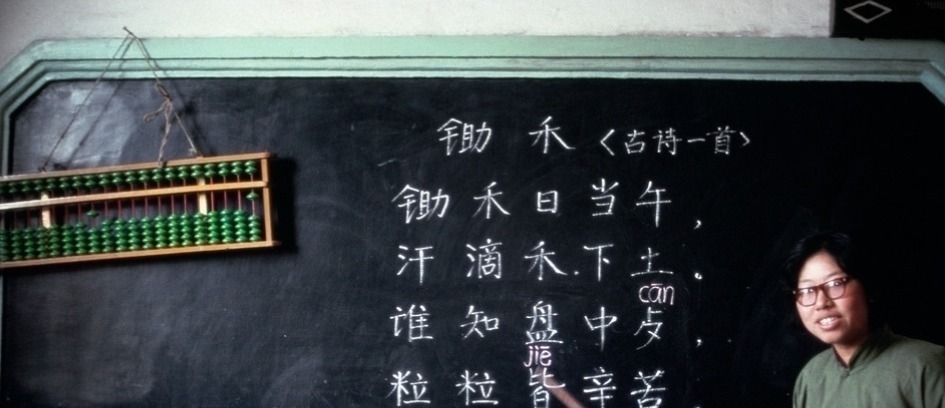 锄 禾 〈古诗一首〉
锄 禾 日 当 午，
汗 滴 禾 下 土。
cān
谁 知 盘 中 歺，
jiē
粒 粒 皆 辛 苦